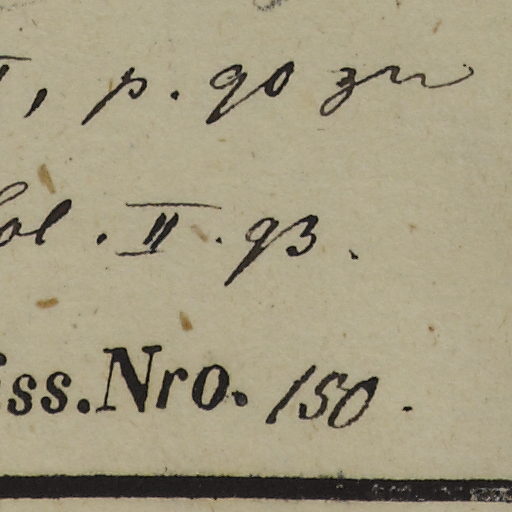 , p. 90 zu
ol. II. 93.
ss. Nro. 150.